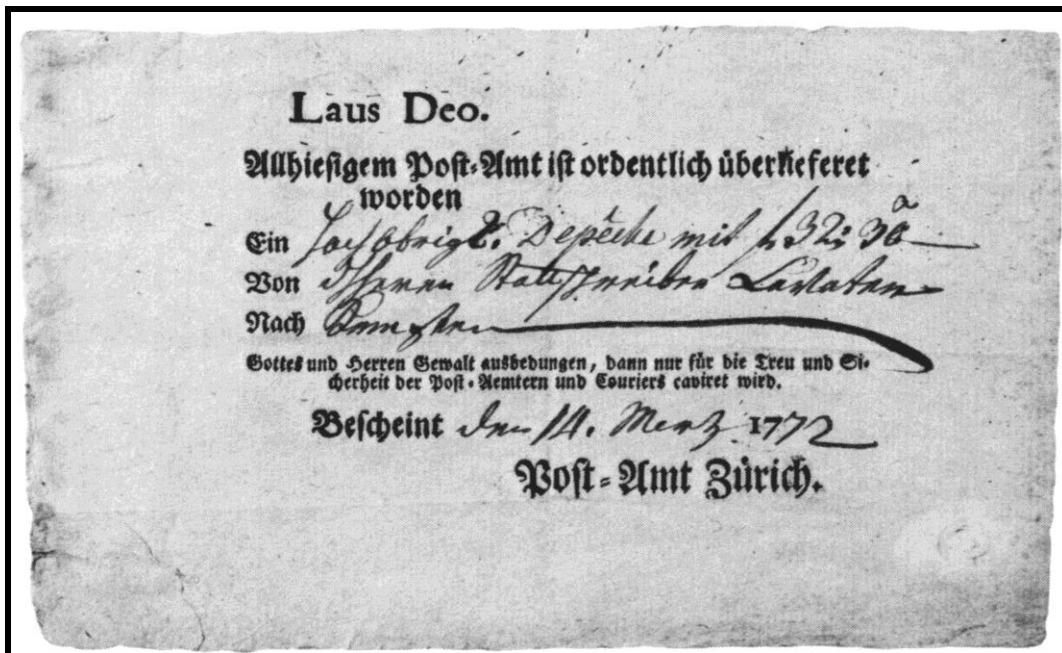 Laus Deo.
Allhiesigem Post-Amt ist ordentlich überlieferet
worden
Ein hochobrigk. Depeche mit f 32: 30
Von Hherren Stattschreiber Lavater
Nach
Gottes und Herren Gewalt ausbedungen, dann nur für die Treu und Si-
cherheit der Post-Aemtern und Couriers caviret wird.
Bescheint den 14. Mertz 1772
Post-Amt Zürich.